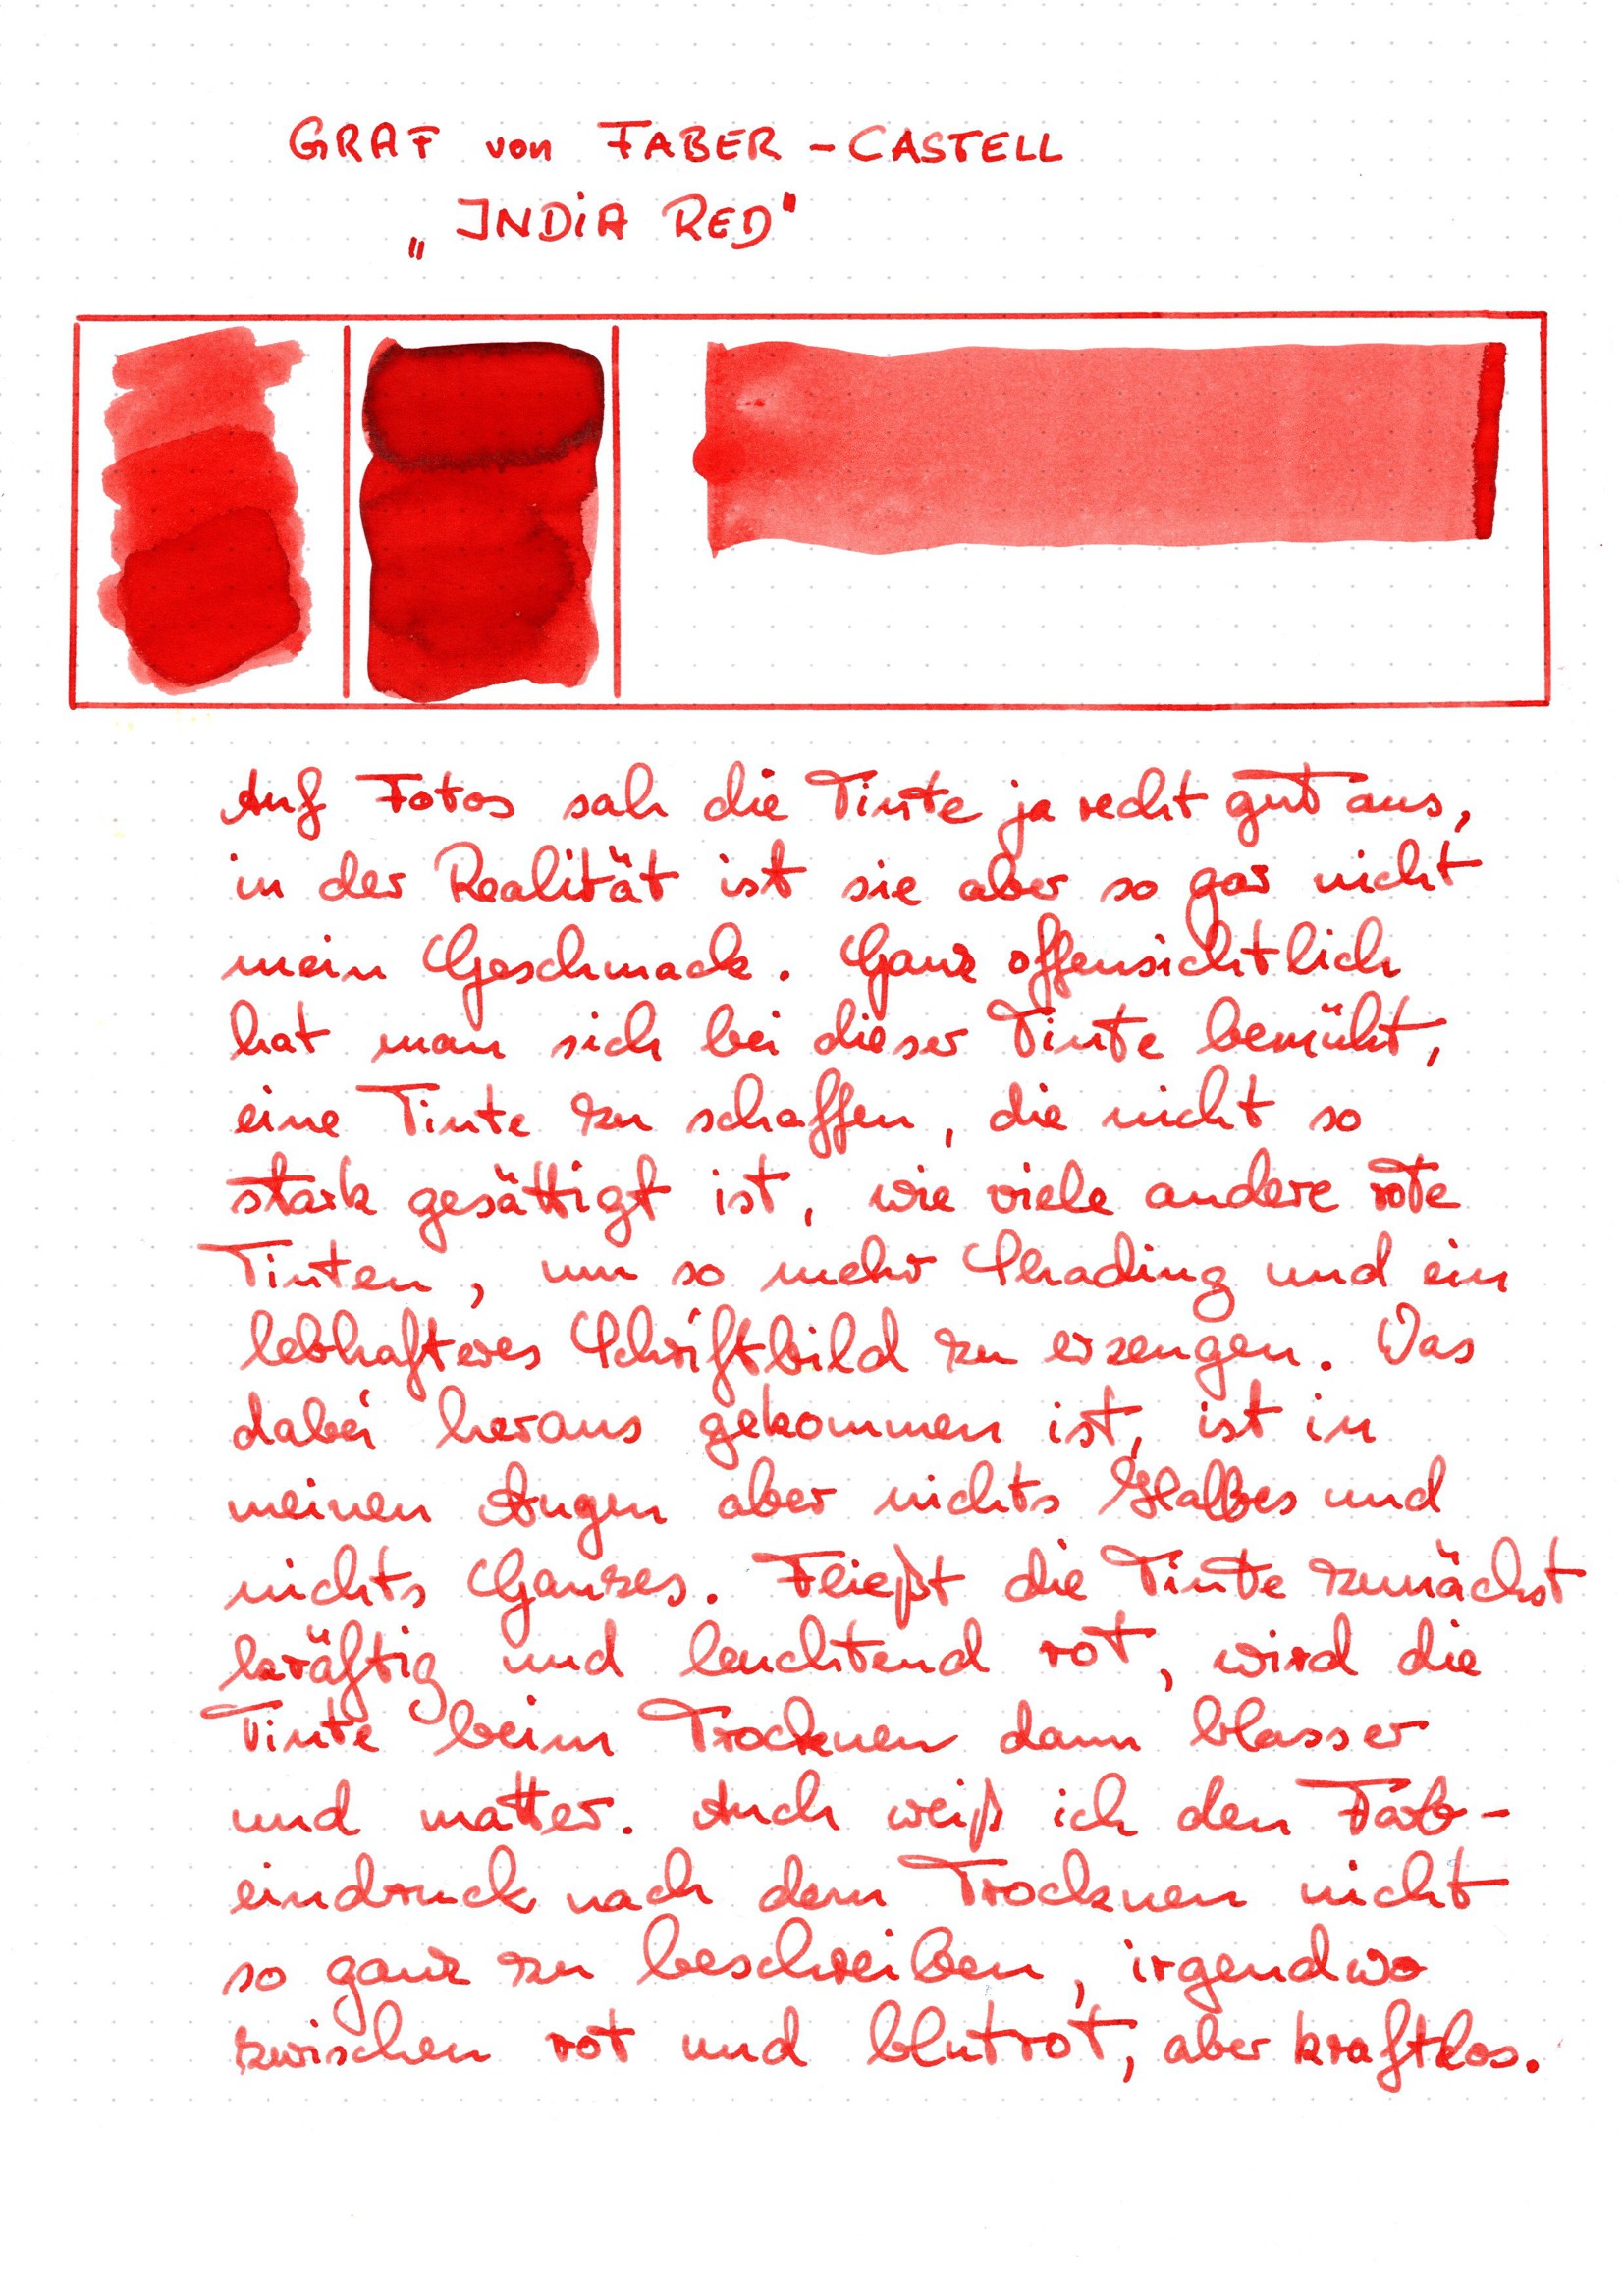 GRAF von FABER-CASTELL
„INDiA RED"
Auf Fotos sah die Tinte ja recht gut aus,
in der Realität ist sie aber so gar nicht
mein Geschmack. Ganz offensichtlich
hat man sich bei dieser Tinte bemüht,
eine Tinte zu schaffen, die nicht so
stark gesättigt ist, wie viele andere rote
Tinten, um so mehr Shading und ein
lebhafteres Schriftbild zu erzeugen. Was
dabei heraus gekommen ist, ist in
meinen Augen aber nichts Halbes und
nichts Ganzes. Fließt die Tinte zunächst
kräftig und leuchtend rot, wird die
Tinte beim Trocknen dann blasser
und matter. Auch weiß ich den Farb-
eindruck nach dem Trocknen nicht
so ganz zu beschreiben, irgendwo
zwischen rot und blutrot, aber kraftlos.